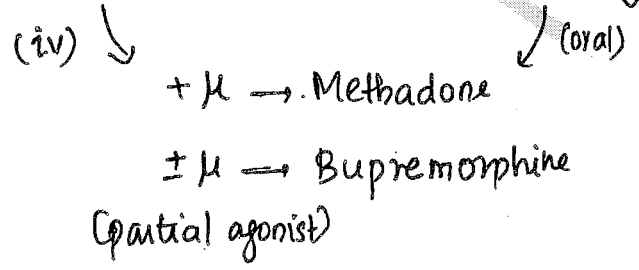 (iv) (oral)
+ μ → Methadone
± μ → Bupremorphine
(partial agonist)